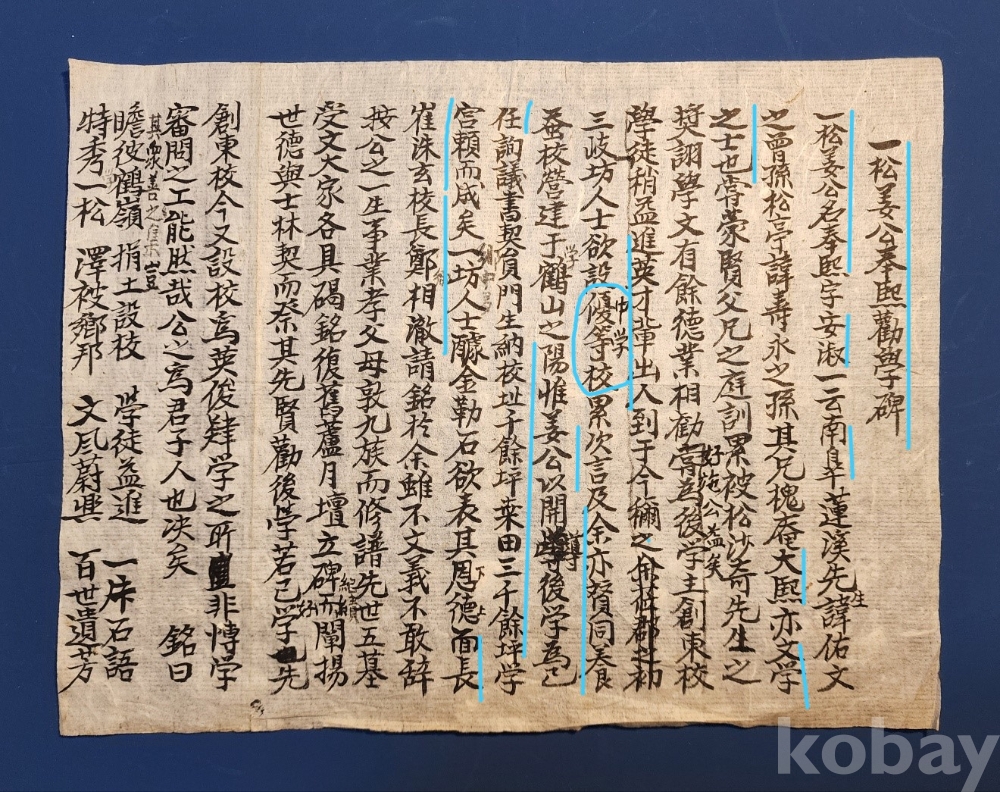 一松姜公奉熙勸學碑
一松姜公名奉熙字安淑一云南皐蓮溪先生諱佑文
之曾孫松亭諱壽永之孫其兄槐庵大熙亦文学
之士也嘗蒙賢父兄之庭訓累被松沙奇先生之
奬詡學文有餘德業相勸嘗為後学主創東校好施公益矣
學徒稍益進英才輩出人到于今稱之
三岐坊人士欲設優等校中学累次言及余亦賛同養
蚕校營建于鶴山之陽惟姜公以開導後学為己
任詢議書契員門生納校址千余坪葉田三千餘坪学
宮賴而成矣一坊人士醵金勒石欲表其恩德面長
崔洙玄校長鄭相澈請銘於余雖不文義不敢辞
按公之一生事業孝父母敦九族而修譜先世五墓
受文大家各具碣銘復舊蘆月壇立碑而闡揚
世德與士林契而奉其先賢勸後学若己学先
創東校今又設校為英俊肄学之所非愽学
審問之工能然哉公之為君子人也决矣 銘曰
瞻彼鶴嶺 捐土設校 学徒益進 一片石語
特秀一松 澤被鄉邦 文风蔚興 百世遺芳
kobay